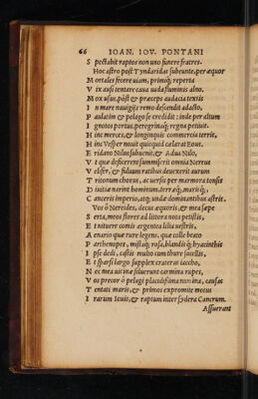 66 IOAN. IOV. PONTANI
S pectabit raptos non uno funere fratres.
Hoc astro post Tyndaridas subeunte, per æquor
M ortales fecere uiam, primoq; reperta
V ix ausi tentare caua uada fluminis alno.
M ox usus, post & præceps audacia texit
I n mare nauigijs remo descendit adacto,
P aulatim & pelago se credidit: inde per altum
I gnotos portus, peregrinaq; regna petiuit.
H inc merces, & longinquis commercia terris,
H inc Vesper nouit quicquid celarat Eous.
E ridano Nilus subuenit, & Adua Nilo,
V i quæ deficerent summisserit omnia Nereus
V election, & fluuium ratibus deuexerit aurum
T ritonum chorus, ac uersis per marmora tonsis
D iuitiæ narint hominum, terræq;, marisq;,
C anceris imperio, atq; undæ dominantibus astris.
Vos ô Nereides, decus æquoris, & mea sæpe
S erta, meos flores ad littora nota petistis,
E t nituere comis argentea lilia uestris,
A enaria quæ rure legens, quæ colle beato
P arthenopes, mistaq; rosa, blandisq; hyacinthis
I pse dedi, castis multo cum thure sacellis,
E t sparsi largo supplex crateras iaccho,
N ec mea uicinæ siluerunt carmina rupes,
V os precor ô pelagi placidissima numina, causas
T entati maris, & primos expromite motus
I rarum Iouis, & raptum inter sydera Cancrum.
Assuerant